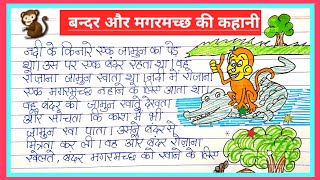 बन्दर और मगरमच्छ की कहानी
नदी के किनारे एक जामुन का पेड़
था। उस पर एक बंदर रहता था। वह
रोजाना जामुन खाता था। नदी में रोजाना
एक मगरमच्छ नहाने के लिए आता था।
वह बंदर को जामुन खाते देखता
और सोचता कि काश मैं भी
जामुन खा पाता। उसने बंदर से
मित्रता कर ली। वह और बंदर रोजाना
खेलते, बंदर मगरमच्छ को खाने के लिए